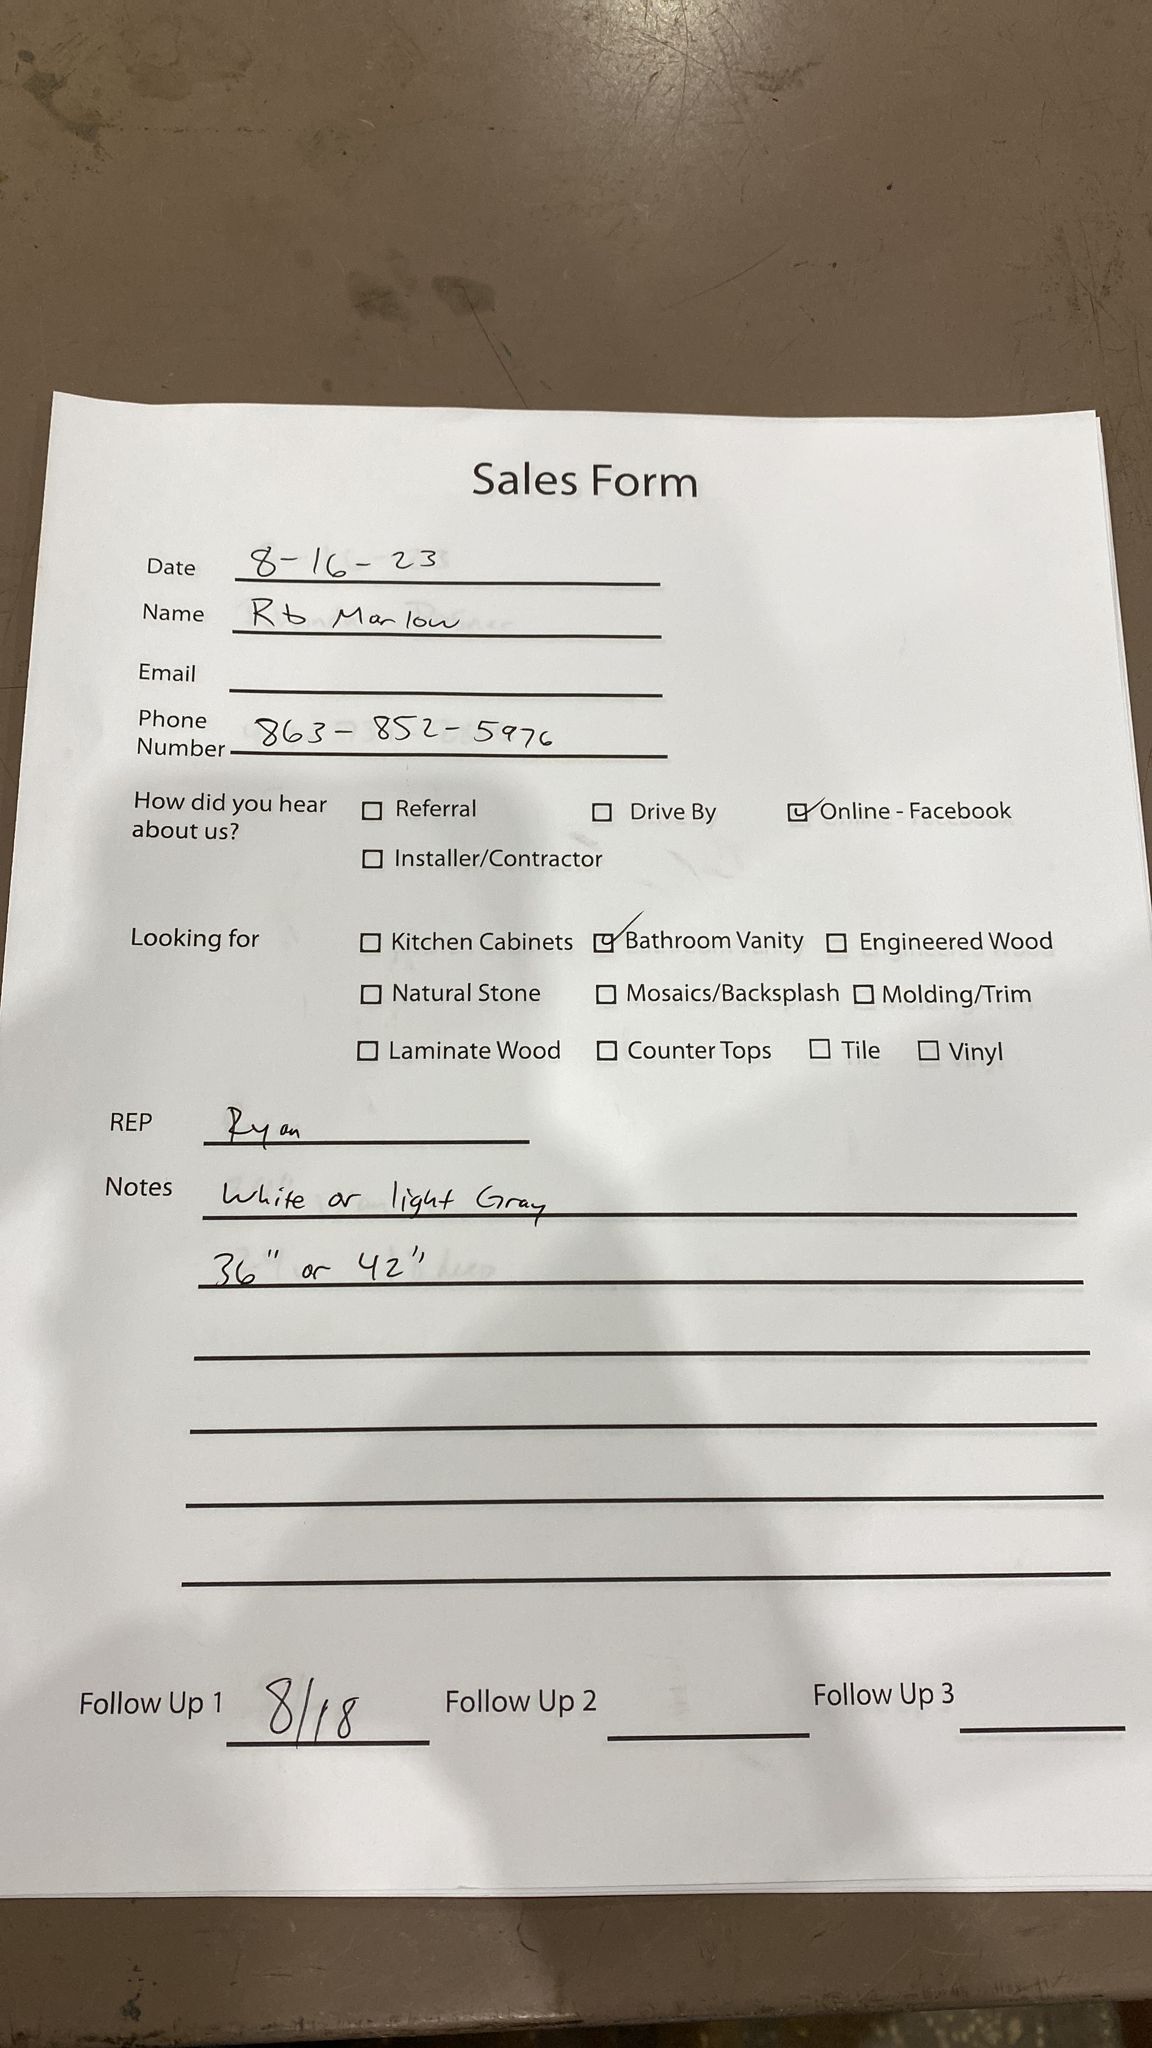 Sales Form
Date 8-16-23
Name Rb Marlow
Email
Phone Number 863-852-5976
How did you hear about us? ☐ Referral ☐ Drive By ☑ Online - Facebook
☐ Installer/Contractor
Looking for ☐ Kitchen Cabinets ☑ Bathroom Vanity ☐ Engineered Wood
☐ Natural Stone ☐ Mosaics/Backsplash ☐ Molding/Trim
☐ Laminate Wood ☐ Counter Tops ☐ Tile ☐ Vinyl
REP Ryan
Notes White or light Gray
36" or 42"
Follow Up 1 8/18 Follow Up 2 Follow Up 3